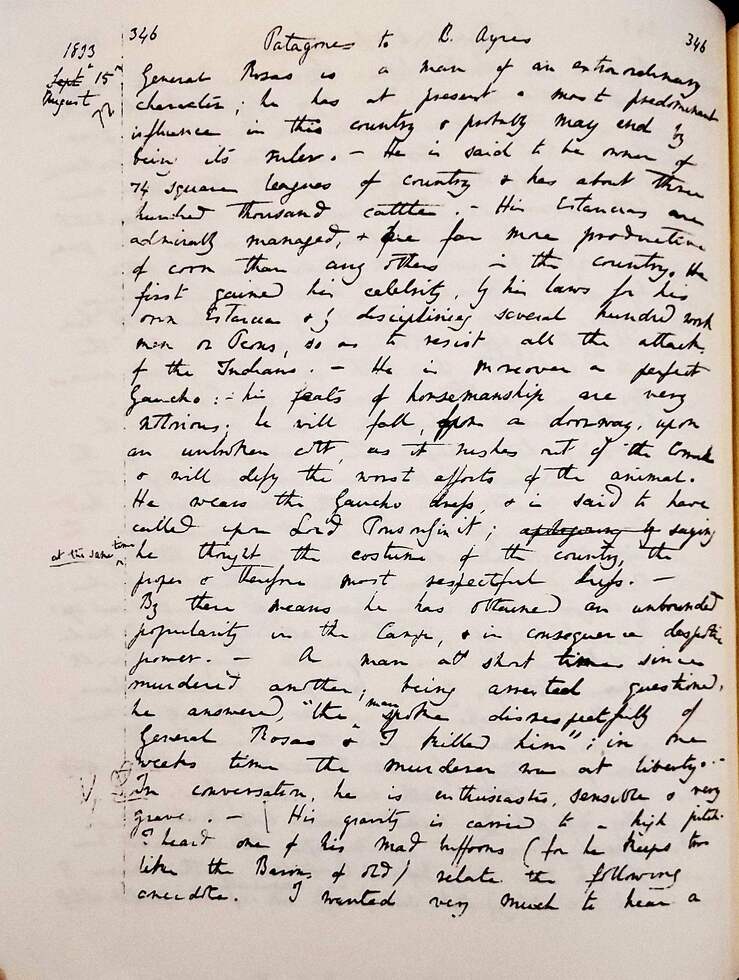 346 Patagones to B. Ayres 346
1833
Sept 15th
August
General Rosas is a man of an extraordinary
character; he has at present a most predominant
influence in this country & probably may end by
being its ruler. — He is said to be owner of
74 square leagues of country & has about three
hundred thousand cattle. — His Estancias are
admirably managed, & are far more productive
of corn than any others in the country. He
first gained his celebrity, by his laws for his
own Estancia & by disciplining several hundred work
men or Peons, so as to resist all the attacks
of the Indians. — He is moreover a perfect
Gaucho: — his feats of horsemanship are very
notorious; he will fall, from a doorway, upon
an unbroken colt, as it rushes out of the Corral
& will defy the worst efforts of the animal.
He wears the Gaucho dress, & is said to have
called upon Lord Ponsonby in it; apologising by saying
at the same time
he thought the costume of the country, the
proper & therefore most respectful dress. —
By these means he has obtained an unbounded
popularity in the Camp, & in consequence despotic
power. — A man a short time since
murdered another; being arrested & questioned,
he answered, "the man spoke disrespectfully of
General Rosas & I killed him"; in one
weeks time the murderer was at liberty. —
In conversation, he is enthusiastic, sensible & very
grave. — His gravity is carried to a high pitch.
I heard one of his mad buffoons (for he keeps two
like the Barons of old) relate the following
anecdote. I wanted very much to hear a